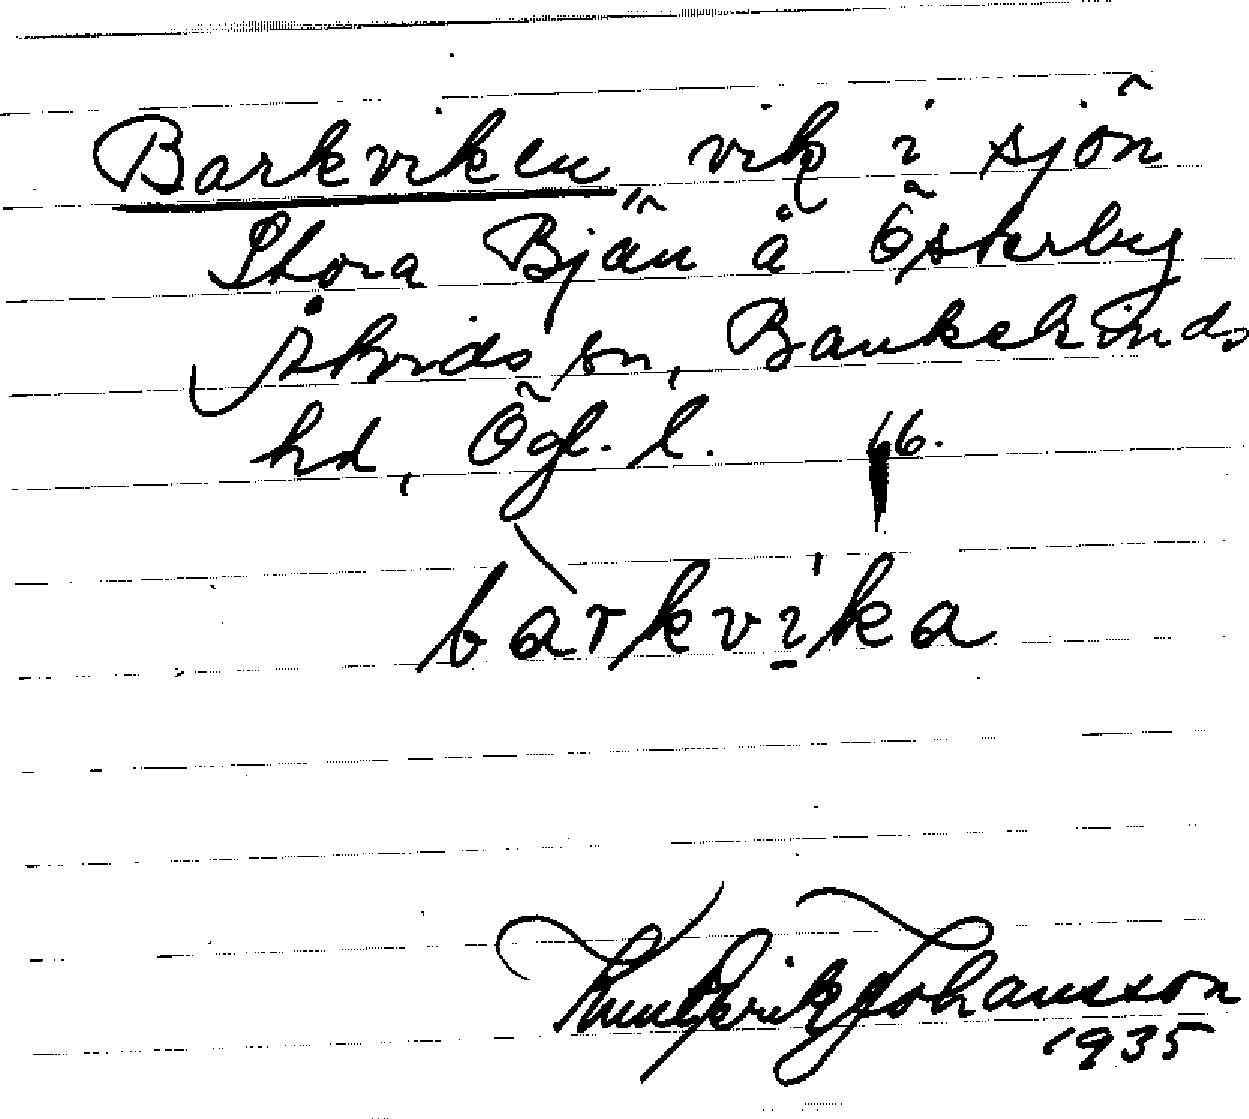 Barkviken vik i sjön
Stora Bjän å Österby
Åtvids sn, Bankekinds
hd, Ögl. l. 66.
barkvika
Knut Erik Johansson
1935